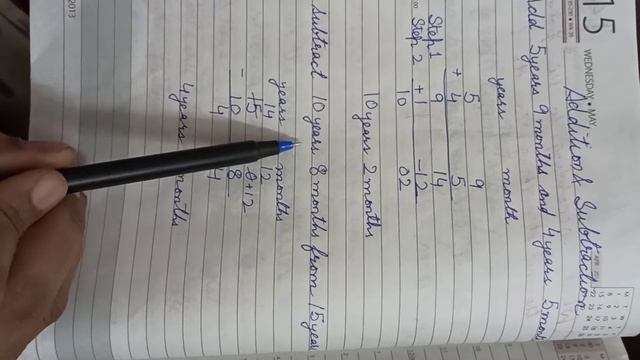 15
WEDNESDAY • MAY
Addition & Subtraction
Add 5 years 9 months and 4 years 5 mon
years month
5 9
+ 4 5
Step 1 9 14
Step 2 +1 -12
10 02
10 years 2 months
Subtract 10 years 8 months from 15 year
years months
14 12
15 0+12
- 10 8
4 4
4 years months
2013